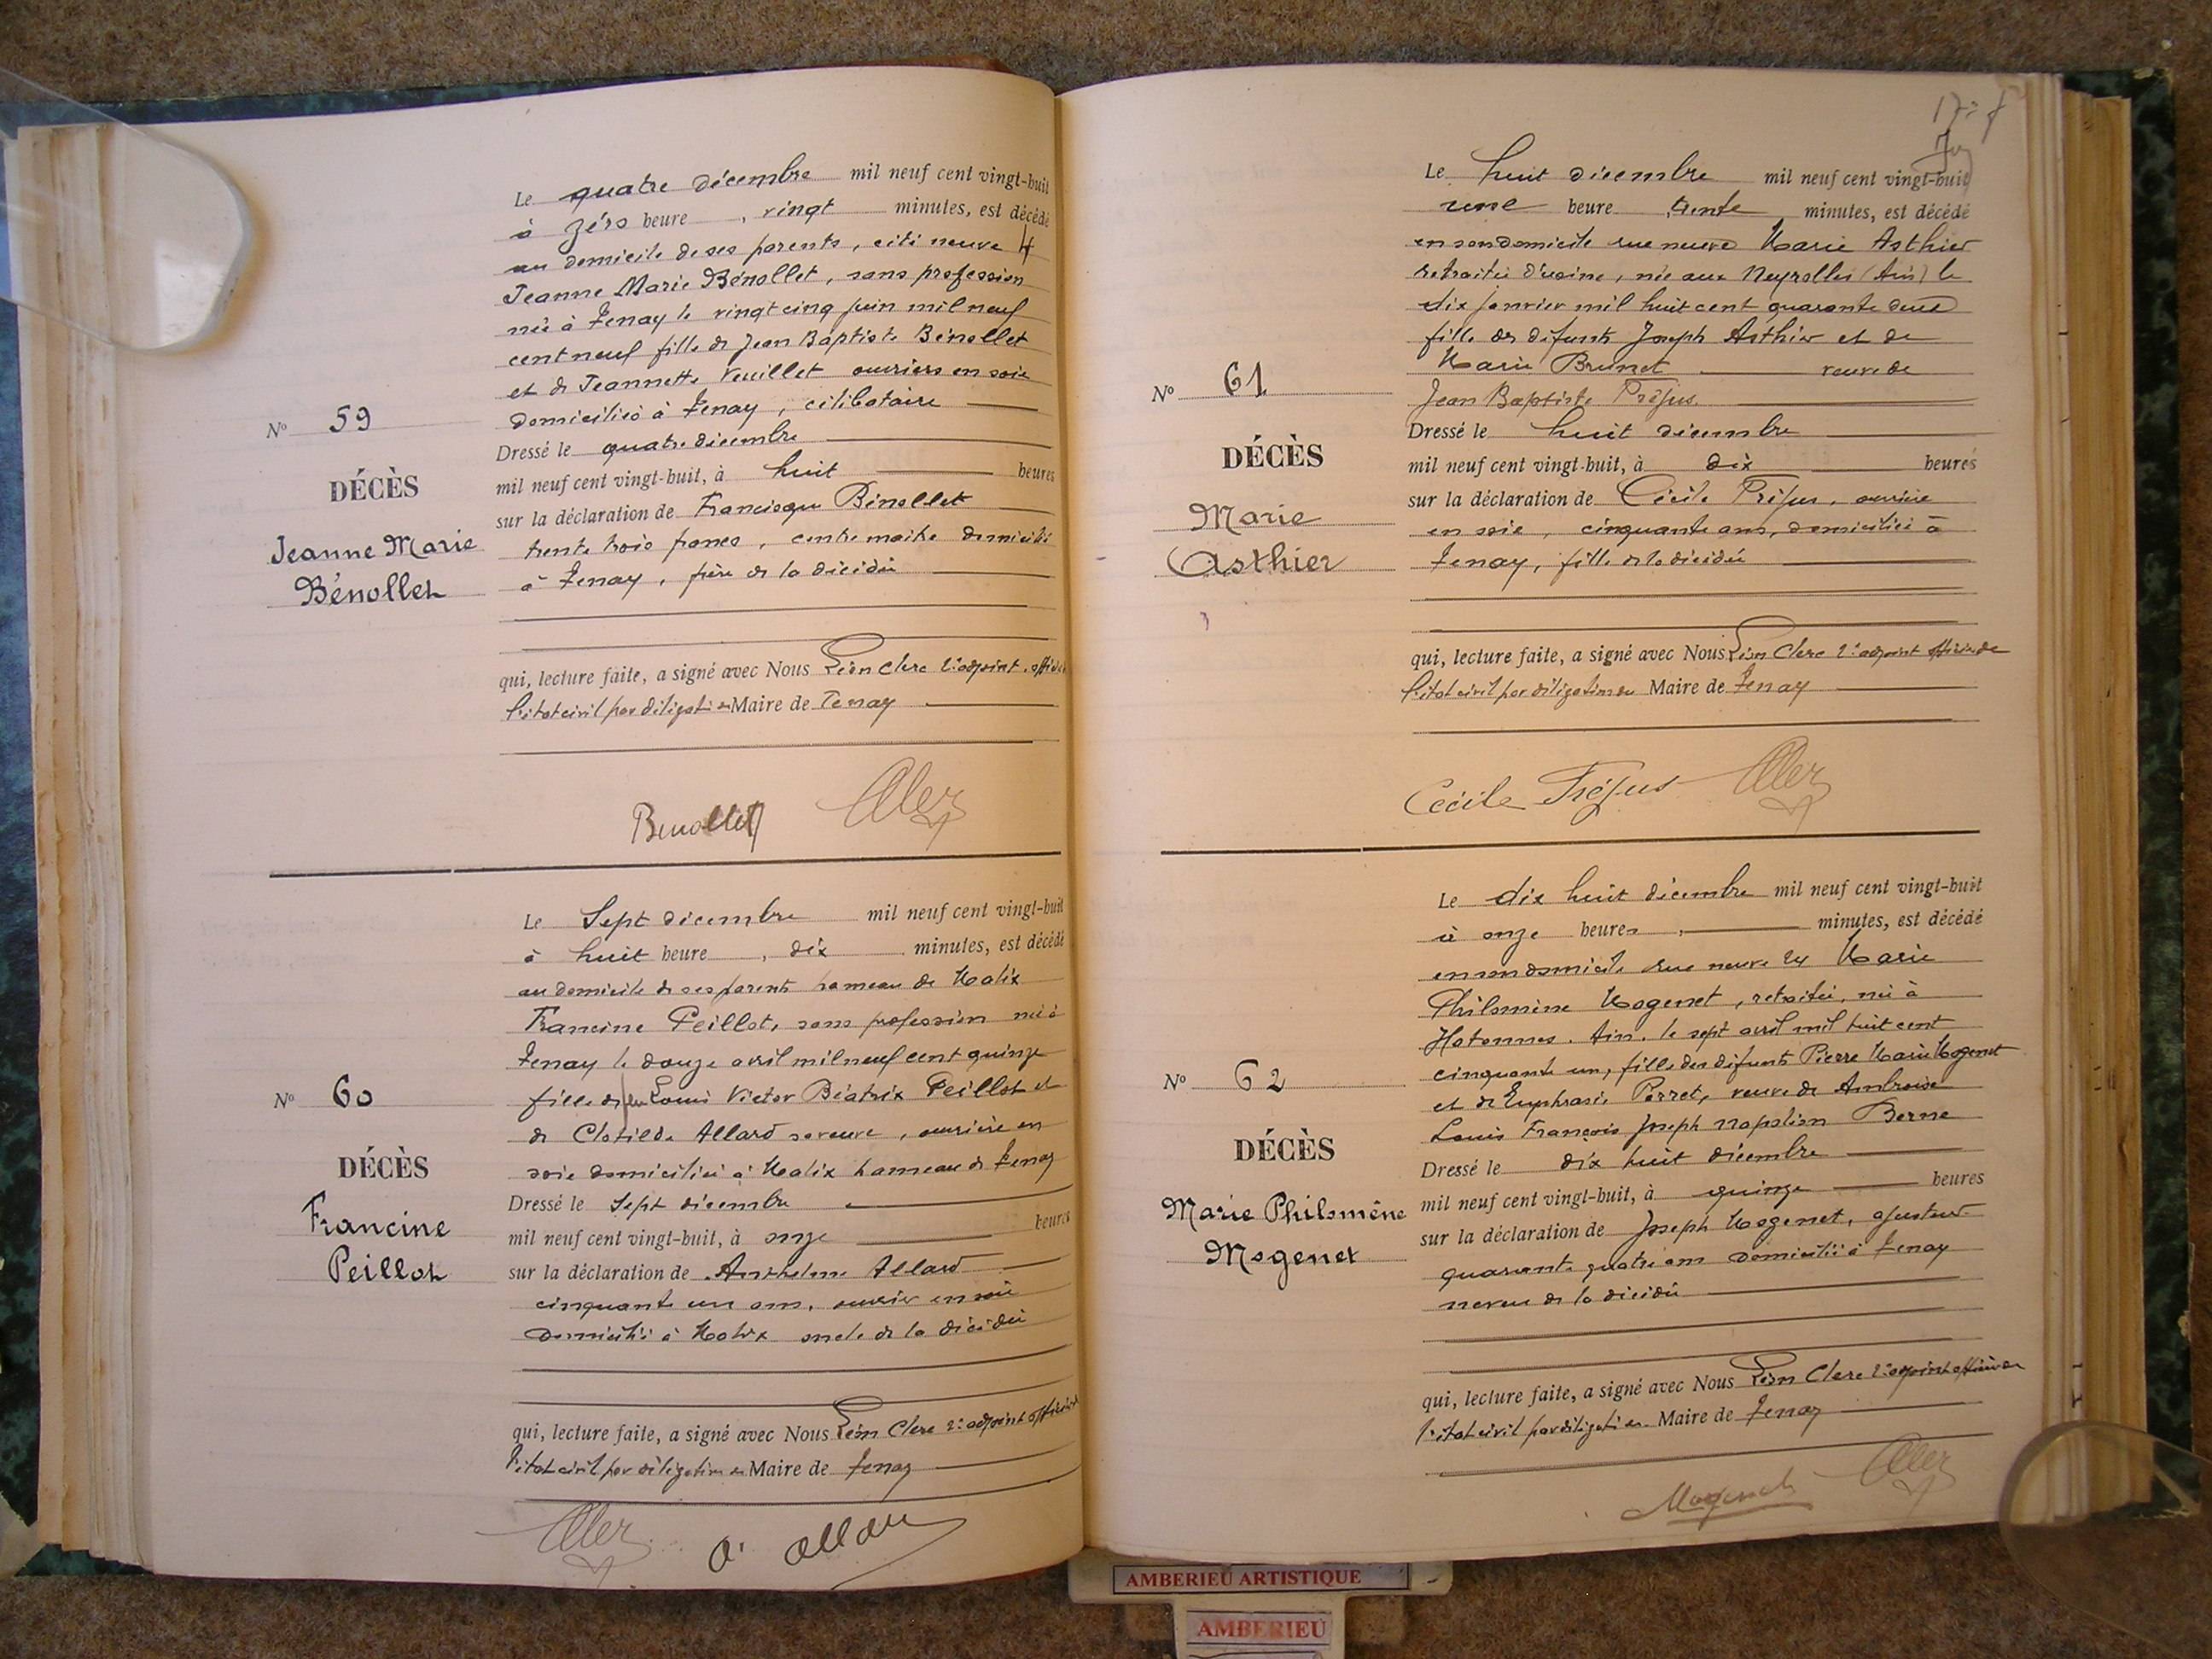 Le quatre décembre mil neuf cent vingt-huit
à zéro heure, vingt minutes, est décédé
au domicile de ses parents, cité neuve 4
Jeanne Marie Bénollet, sans profession
née à Tenay le vingt cinq juin mil neuf
cent neuf fille de Jean Baptiste Bénollet
et de Jeannette Veuillet ouvriers en soie
domiciliés à Tenay, célibataire
Nº 59
DÉCÈS
Jeanne Marie
Bénollet
Dressé le quatre décembre
mil neuf cent vingt-huit, à huit heures
sur la déclaration de Francisque Bénollet
trente trois ans, contremaitre domicilié
à Tenay, frère de la décédée
qui, lecture faite, a signé avec Nous Léon Clerc 2e adjoint officier
l'état civil par délégation Maire de Tenay
Benollet
Le Sept décembre mil neuf cent vingt-huit
à huit heure, dix minutes, est décédé
au domicile de ses parents hameau de Malix
Francine Peillot, sans profession née à
Tenay le douze avril mil neuf cent quinze
fille de feu Louis Victor Béatrix Peillot et
de Clotilde Allard sa veuve, ouvrière en
soie domiciliée à Malix hameau de Tenay
Nº 60
DÉCÈS
Francine
Peillot
Dressé le Sept décembre
mil neuf cent vingt-huit, à onze heures
sur la déclaration de Anthelme Allard
cinquante un ans, ouvrier en soie
domicilié à Malix oncle de la décédée
qui, lecture faite, a signé avec Nous Léon Clerc 2e adjoint officier
l'état civil par délégation du Maire de Tenay
A. Allard
Le huit décembre mil neuf cent vingt-huit
une heure trente minutes, est décédé
en son domicile rue neuve Marie Asthier
retraitée d'usine, née aux Neyrolles (Ain) le
dix janvier mil huit cent quarante deux
fille des défunts Joseph Asthier et de
Marie Brunet veuve de
Jean Baptiste Préfus
Nº 61
DÉCÈS
Marie
Asthier
Dressé le huit décembre
mil neuf cent vingt-huit, à dix heures
sur la déclaration de Cécile Préfus, ouvrière
en soie, cinquante ans, domiciliée à
Tenay, fille de la décédée
qui, lecture faite, a signé avec Nous Léon Clerc 2e adjoint officier de
l'état civil par délégation du Maire de Tenay
Cécile Fréjus
Le dix huit décembre mil neuf cent vingt-huit
à onze heures, minutes, est décédé
en son domicile rue neuve 24 Marie
Philomène Mogenet, retraitée, née à
Hotonnes. Ain. le sept avril mil huit cent
cinquante un, fille des défunts Pierre Marie Mogenet
et de Euphrasie Perret, veuve de Ambroise
Louis François Joseph Napoléon Berne
Nº 62
DÉCÈS
Marie Philomène
Mogenet
Dressé le dix huit décembre
mil neuf cent vingt-huit, à quinze heures
sur la déclaration de Joseph Mogenet, ajusteur
quarante quatre ans domicilié à Tenay
neveu de la décédée
qui, lecture faite, a signé avec Nous Léon Clerc 2e adjoint officier de
l'état civil par délégation Maire de Tenay
Mogenet
AMBERIEU ARTISTIQUE
AMBERIEU